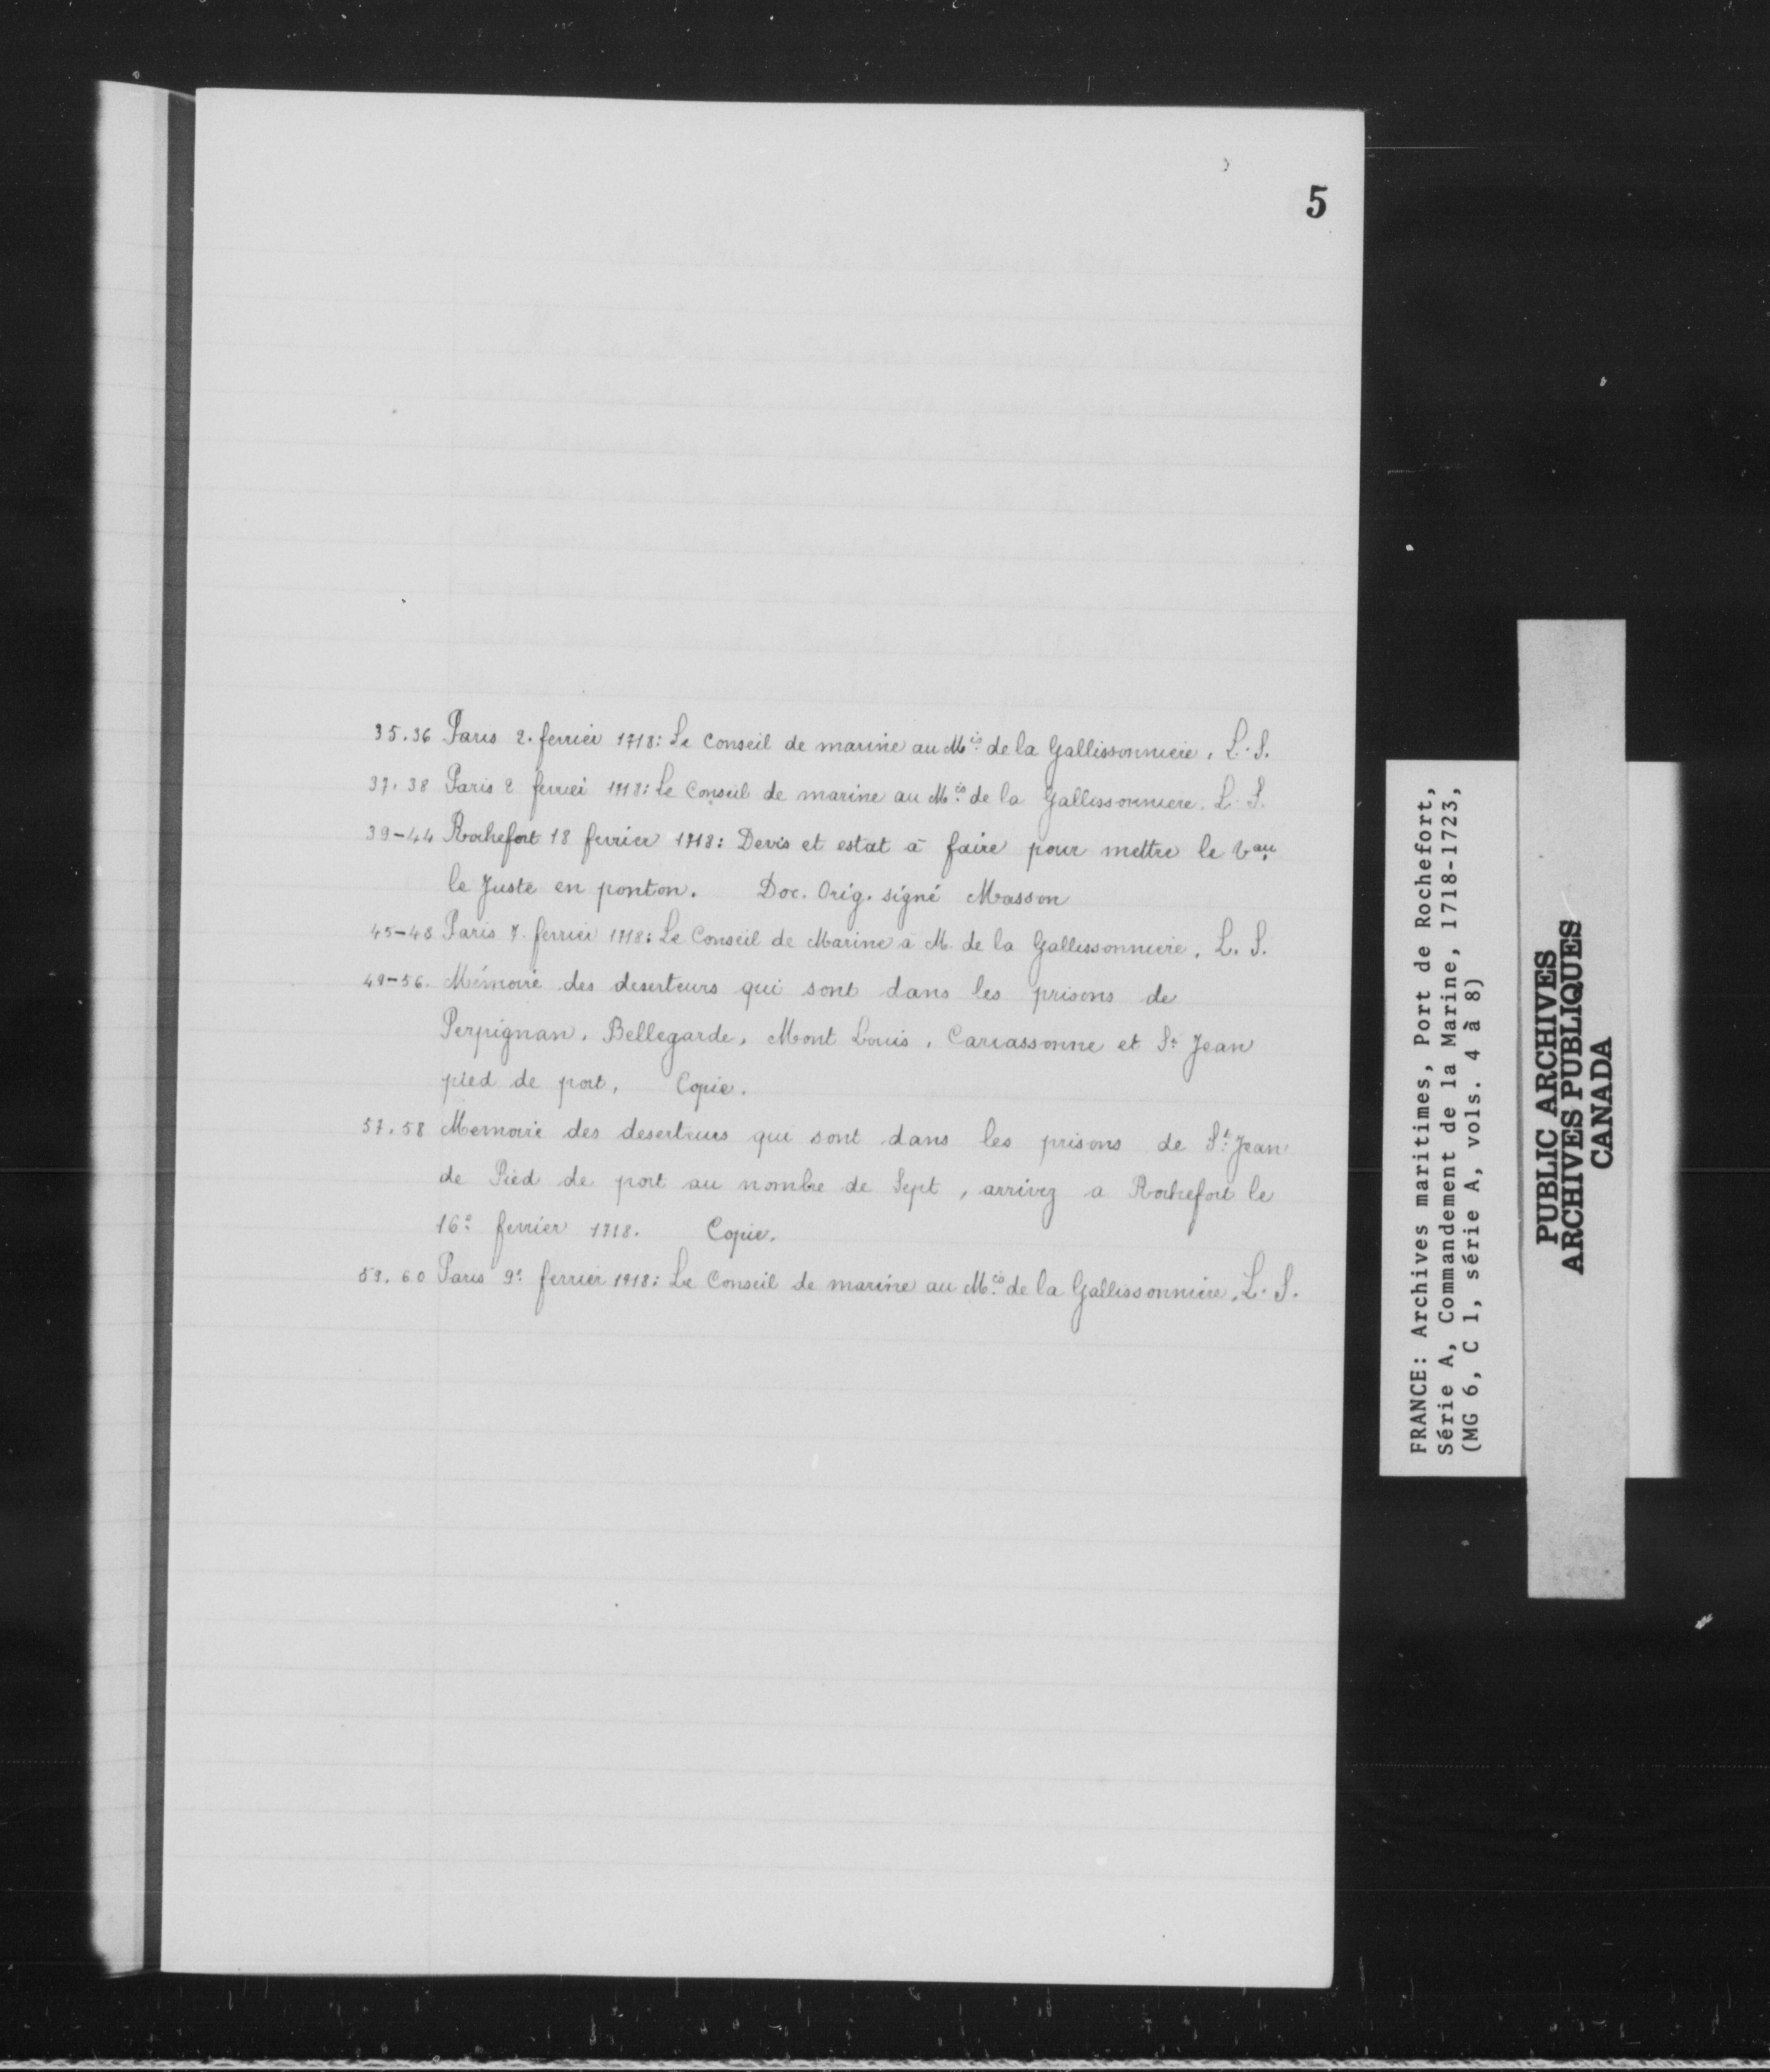 5
35.36 Paris 2. ferrier 1718: Le Conseil de marine au Mis de la Gallissonniere. L. S.
37.38 Paris 2 ferrier 1718: Le Conseil de marine au Mis de la Gallissonniere. L. S.
39-44 Rochefort 18 ferrier 1718: Devis et estat à faire pour mettre le Vau
le Juste en ponton. Doc. Orig. signé Masson
45-48 Paris 7. ferrier 1718: Le Conseil de Marine à M. de la Gallissonniere. L. S.
49-56. Mémoire des deserteurs qui sont dans les prisons de
Perpignan, Bellegarde, Mont Louis, Carcassonne et St Jean
pied de port. Copie.
57.58 Memoire des deserteurs qui sont dans les prisons de St Jean
de Pied de port au nombre de Sept, arrivez a Rochefort le
16e ferrier 1718. Copie.
59.60 Paris 9e ferrier 1718: Le Conseil de marine au Mis de la Gallissonniere. L. S.
FRANCE: Archives maritimes, Port de Rochefort,
Série A, Commandement de la Marine, 1718-1723,
(MG 6, C 1, série A, vols. 4 à 8)
PUBLIC ARCHIVES
ARCHIVES PUBLIQUES
CANADA